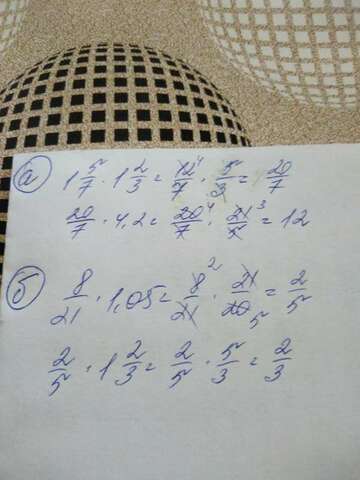 а) 1 5/7 · 1 2/3 = 12⁴/7 · 5/3 = 20/7
20/7 · 4,2 = 20⁴/7 · 21³/5 = 12
б) 8/21 · 1,05 = 8²/21 · 21/20₅ = 2/5
2/5 · 1 2/3 = 2/5 · 5/3 = 2/3